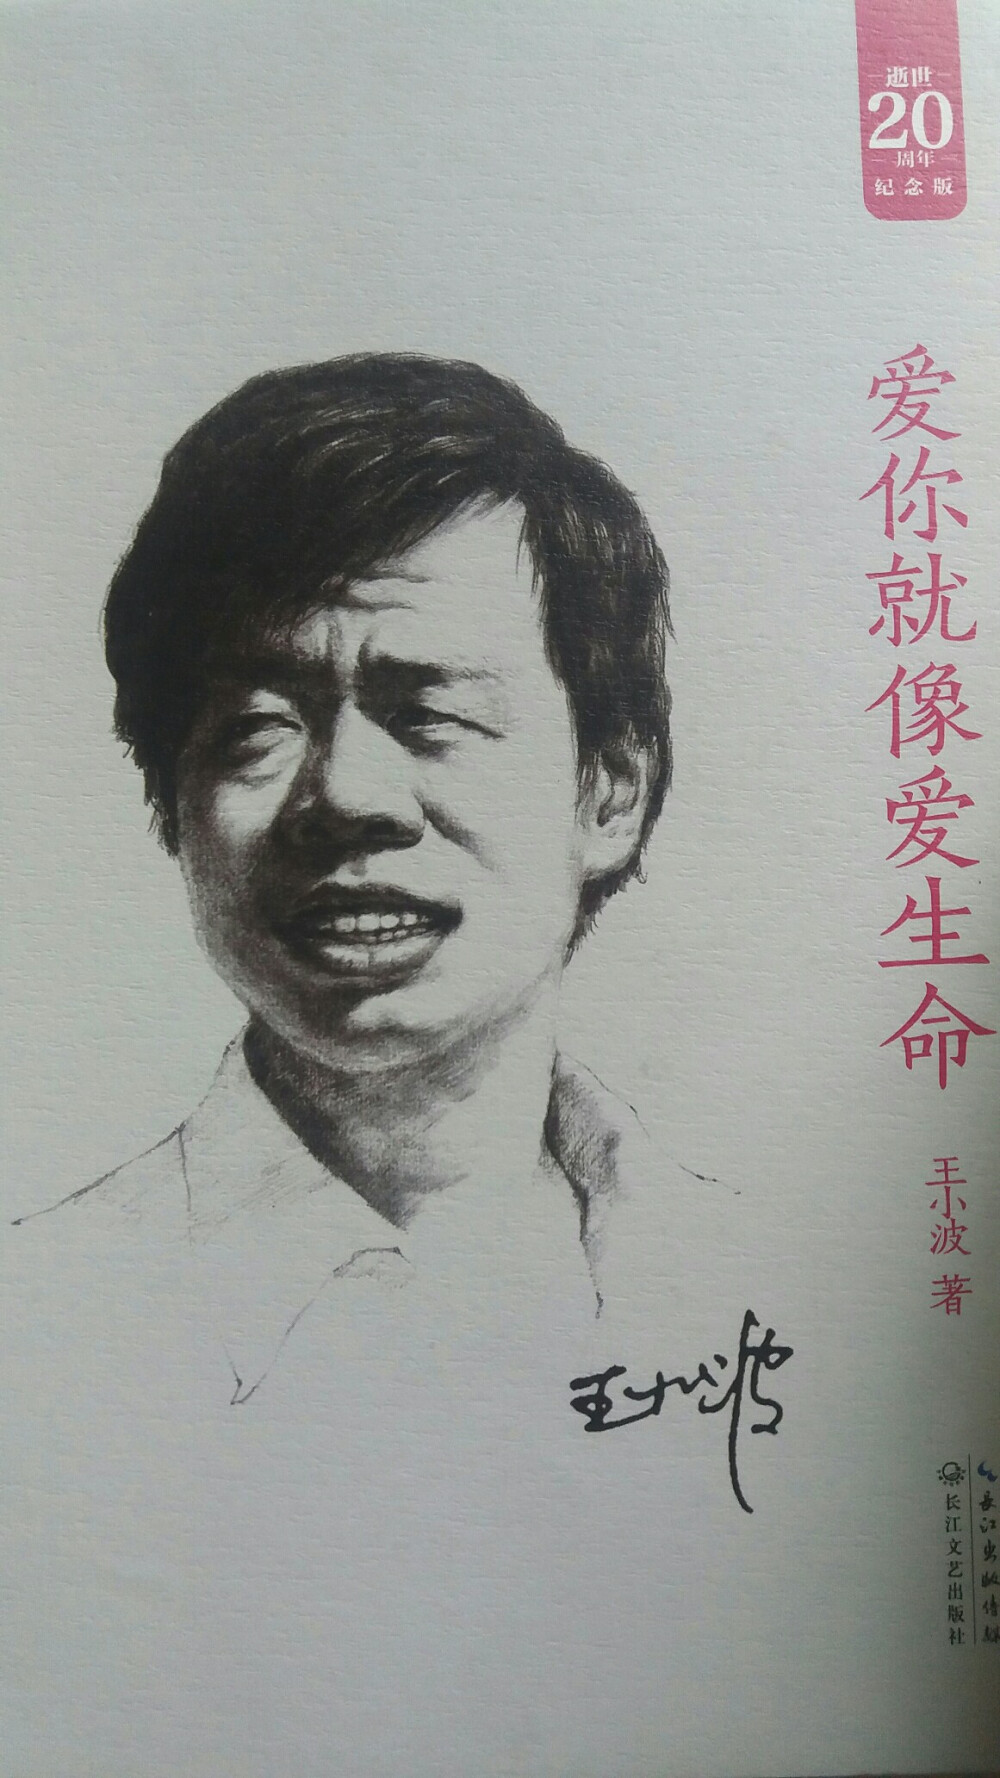 逝世
20
周年
纪念版
爱你就像爱生命
王小波 著
王小波
长江文艺出版社
长江出版传媒